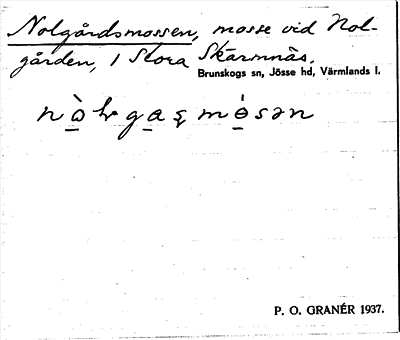 Nolgårdsmossen, mosse vid Nol-
gården, i Stora Skärmnäs.
Brunskogs sn, Jösse hd, Värmlands l.
P. O. GRANÉR 1937.